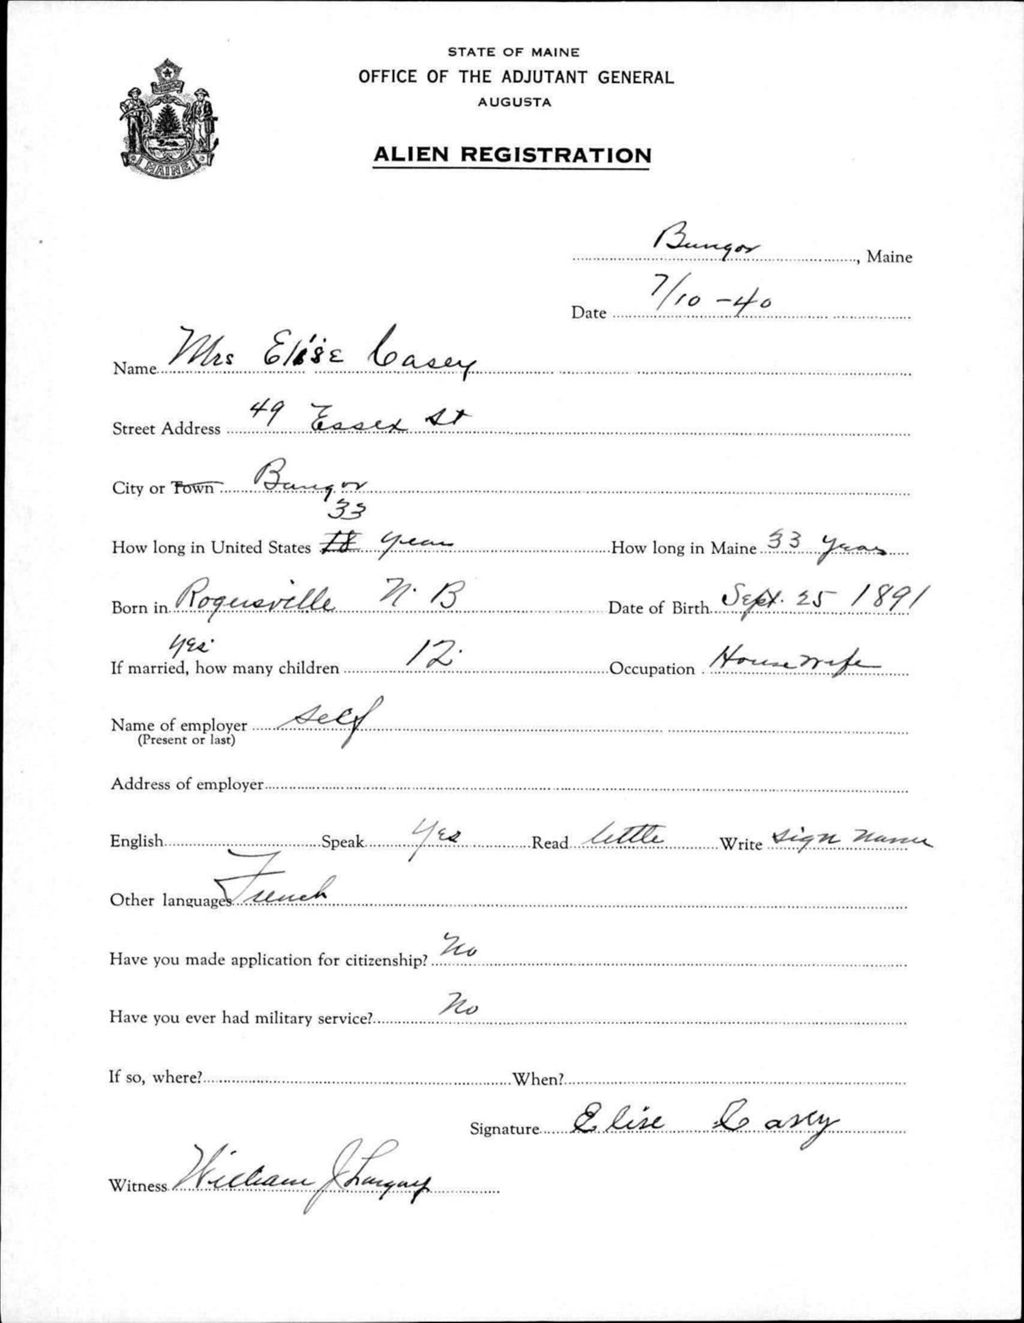 STATE OF MAINE
OFFICE OF THE ADJUTANT GENERAL
AUGUSTA
ALIEN REGISTRATION
MAINE
Bangor, Maine
Date 7/10-40
Name Mrs Elise Casey
Street Address 49 Essex St
City or Town Bangor
33
How long in United States 18 years How long in Maine 33 years
Born in Rogersville N.B Date of Birth Sept. 25 1891
yes
If married, how many children 12 Occupation Housewife
Name of employer self
(Present or last)
Address of employer
English Speak Yes Read little Write sign name
Other languages French
Have you made application for citizenship? No
Have you ever had military service? No
If so, where? When?
Signature Elise Casey
Witness William J